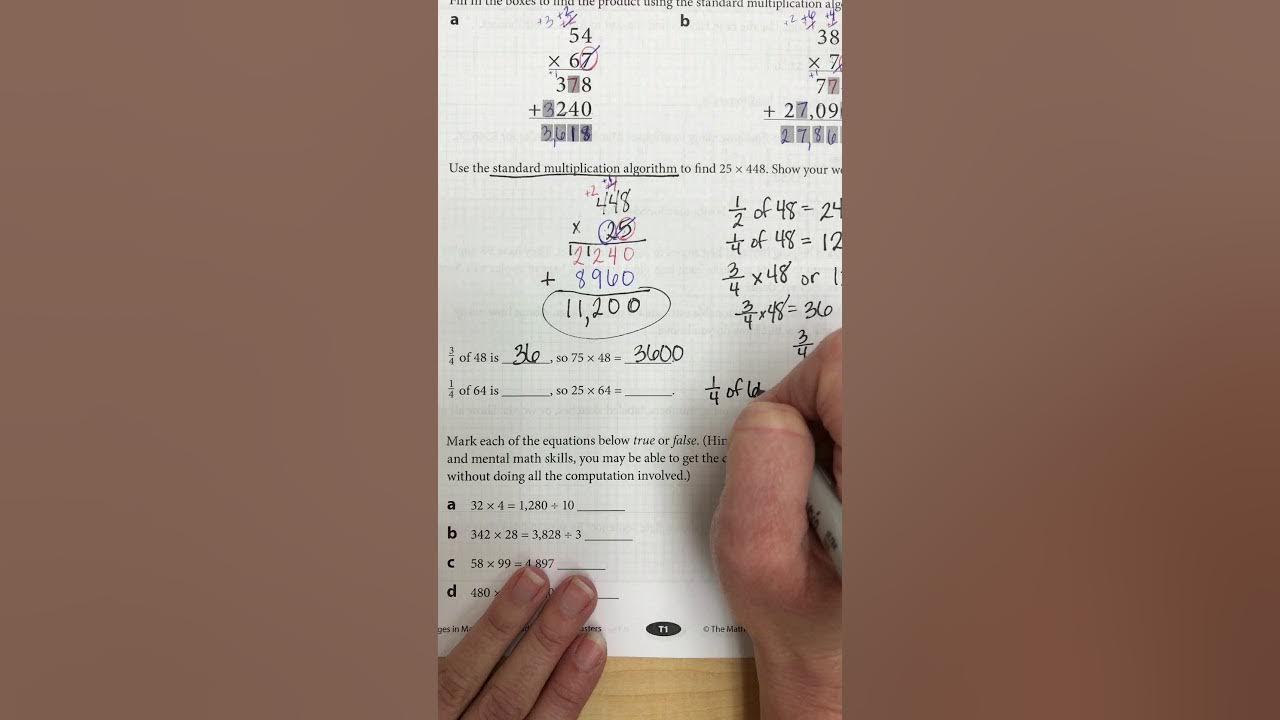 Fill in the boxes to find the product using the standard multiplication alg
a
+3 +2
54
× 67
378
+3240
3,618
b
+2 +6
38
× 7
77
+ 27,09
27,86
Use the standard multiplication algorithm to find 25 × 448. Show your w
+2 +4
448
× 25
2240
+ 8960
11,200
1/2 of 48 = 24
1/4 of 48 = 12
3/4 × 48 or 1
3/4 × 48 = 36
3/4
3/4 of 48 is 36, so 75 × 48 = 3600
1/4 of 64 is ______, so 25 × 64 = ______.
1/4 of 6
Mark each of the equations below true or false. (Hin
and mental math skills, you may be able to get the c
without doing all the computation involved.)
a 32 × 4 = 1,280 ÷ 10 ______
b 342 × 28 = 3,828 ÷ 3 ______
c 58 × 99 = 4,897 ______
d 480 ×
ges in Ma
asters
T1
© The Math